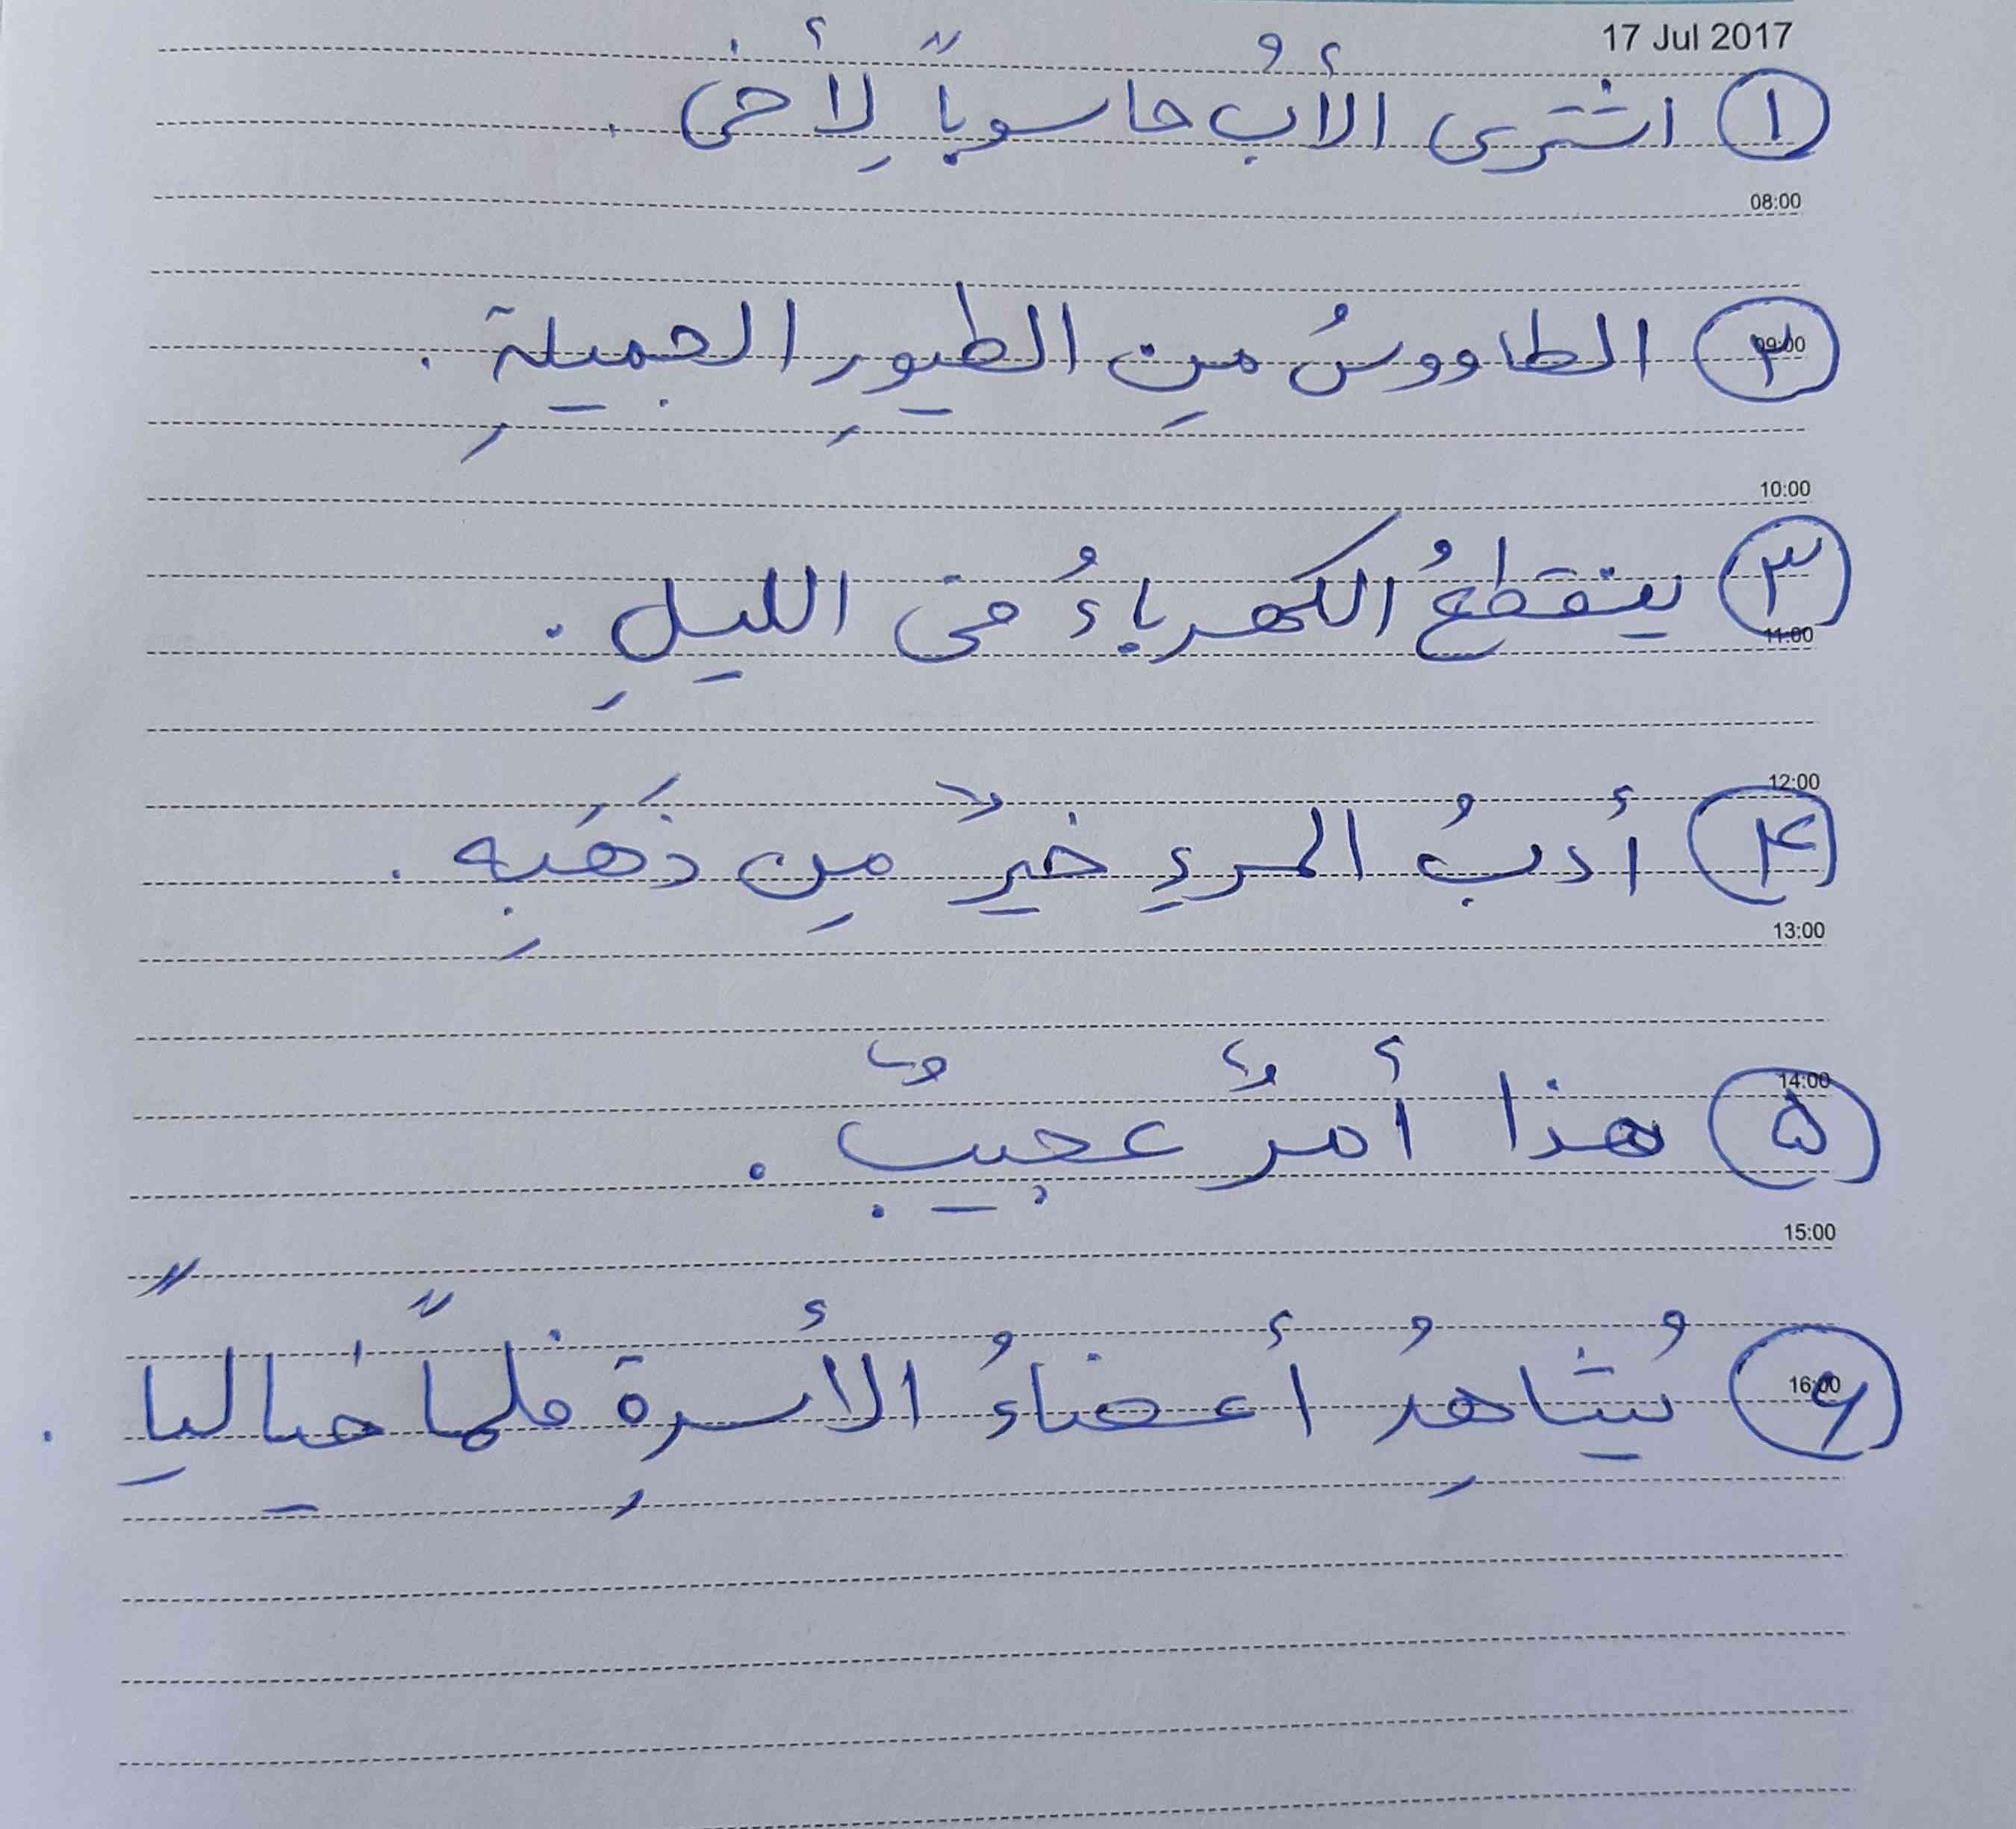 17 Jul 2017
١ اشترى الأبُ حاسوباً لِأخى .
08:00
09:00
٢ الطاووسُ مِن الطيورِ الجميلةِ .
10:00
٣ ينقطعُ الكهرباءُ فى الليلِ .
11:00
12:00
۴ أدبُ المرءِ خيرٌ مِن ذَهَبِه .
13:00
14:00
۵ هذا أمرٌ عجيبٌ .
15:00
16:00
۶ يُشاهِدُ أعضاءُ الأسرةِ فلماً خيالياً .